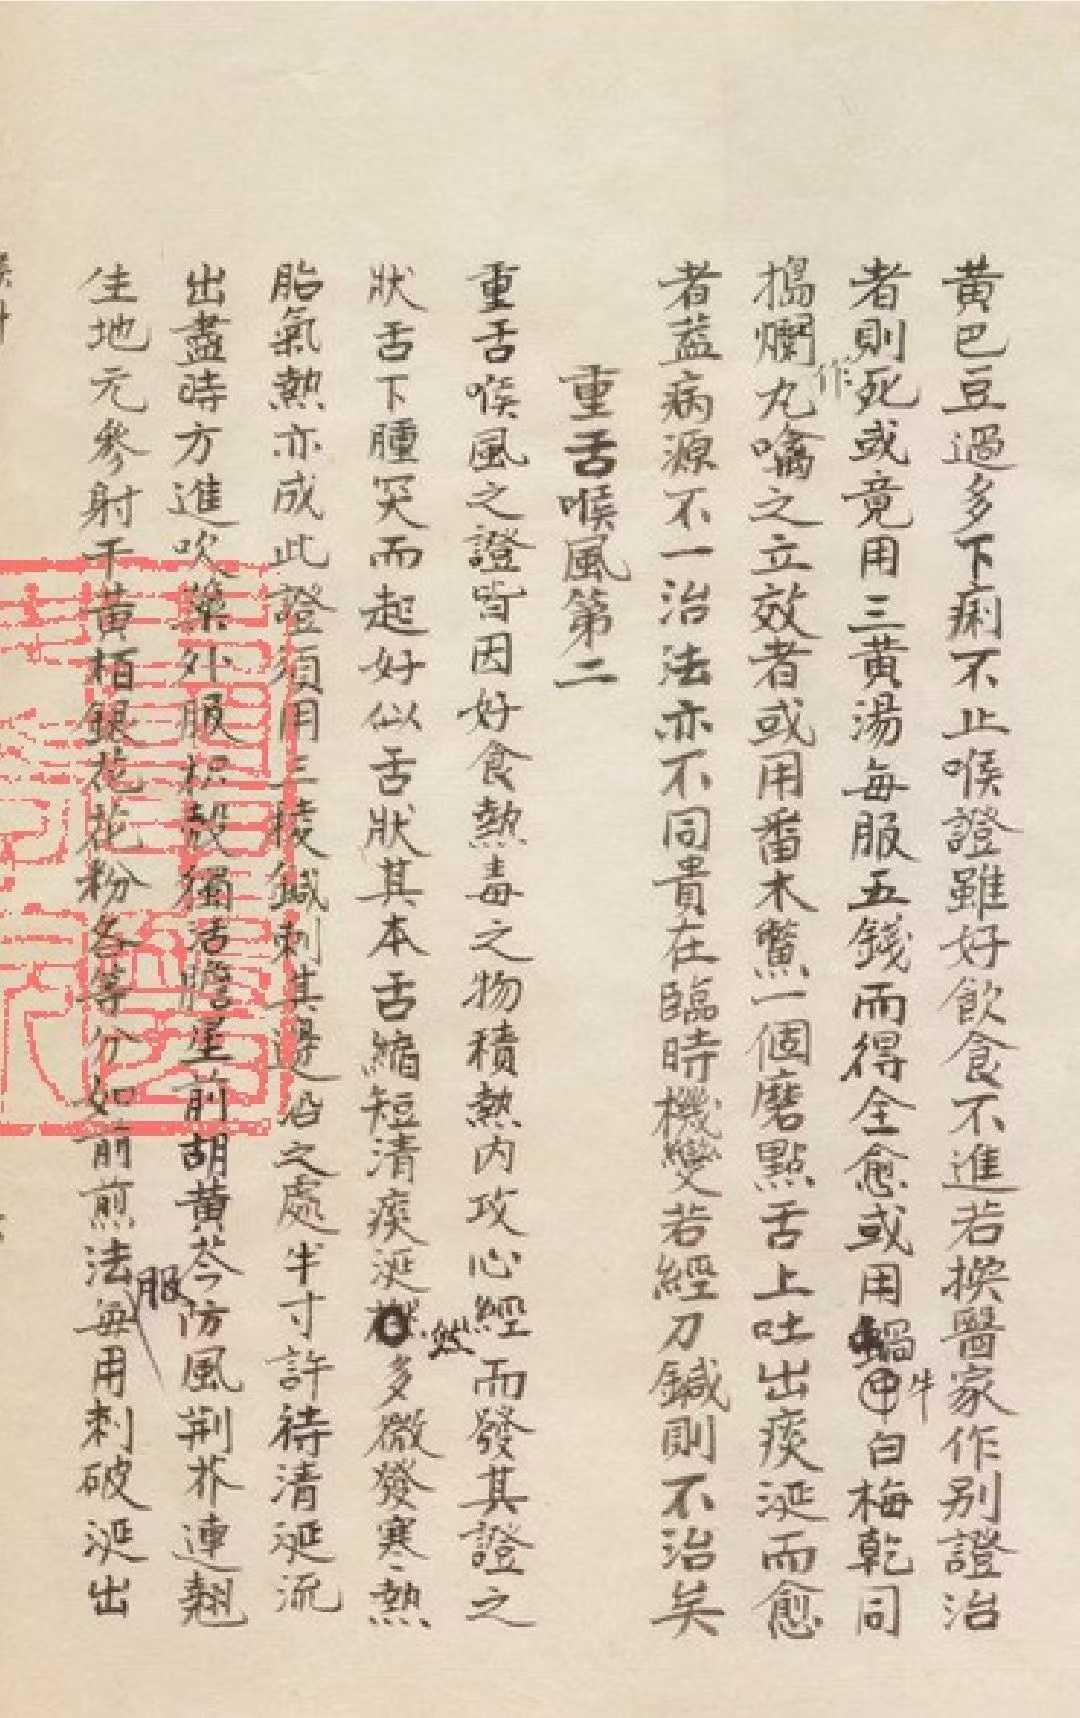 黄巴豆過多下痢不止喉證雖好飲食不進若換醫家作別證治
者則死或竟用三黄湯每服五錢而得全愈或用蝸牛白梅乾同
搗爛作丸噙之立效者或用番木鱉一個磨點舌上吐出痰涎而愈
者蓋病源不一治法亦不同貴在臨時機變若經刀鍼則不治矣
重舌喉風第二
重舌喉風之證皆因好食熱毒之物積熱内攻心經而發其證之
狀舌下腫突而起好似舌狀其本舌縮短清痰涎然多微發寒熱
胎氣熱亦成此證須用三棱鍼刺其邊沿之處半寸許待清涎流
出盡時方進吹藥外服枳殼獨活膽星前胡黄芩防風荆芥連翹
生地元參射干黄栢銀花花粉各等分如前煎法每服用刺破涎出